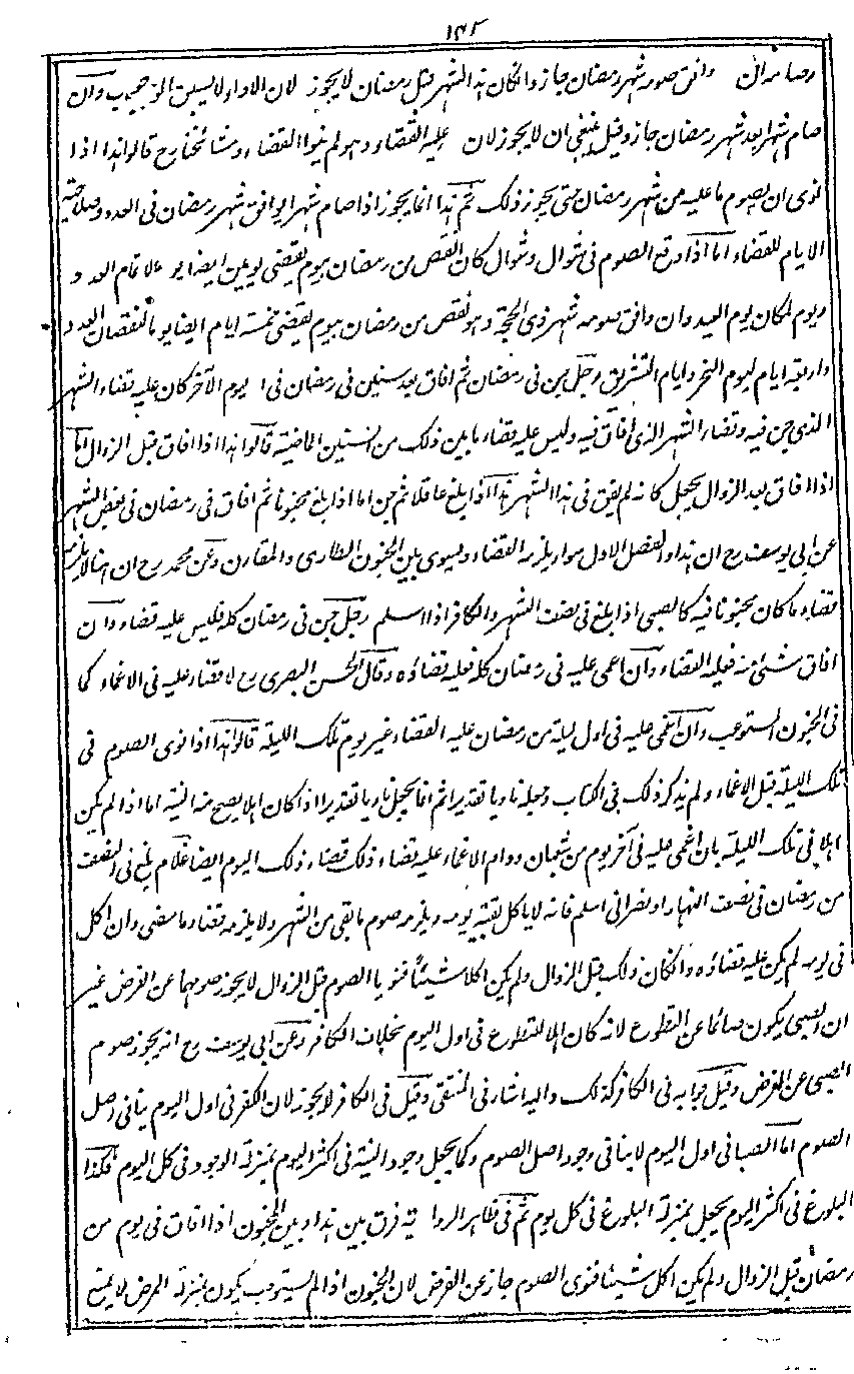 ١٤٢
وافق صومه شهر رمضان جاز وان كان هذا الشهر قبل رمضان لا يجوز لان الاداء لا يسبق الوجوب وان
صام شهرا بعد شهر رمضان جاز وقيل ينبغي ان لا يجوز لان عليه القضاء وهو لم ينوا القضاء ومشائخنا رح قالوا هذا اذا
نوى ان يصوم ما عليه من شهر رمضان حتى يجوز ذلك ثم هذا انما يجوز اذا صام شهرا يوافق شهر رمضان في العدد وصلاحية
الايام للقضاء اما اذا وقع الصوم في شوال وشوال كان انقص من رمضان بيوم يقضي يومين ايضا يوما لاتمام العدد
ويوم لمكان يوم العيد وان وافق صومه شهر ذي الحجة وهو نقص من رمضان بيوم يقضي خمسة ايام ايضا يوما لنقصان العدد
واربعة ايام ليوم النحر وايام التشريق رجل جن في رمضان ثم افاق بعد سنين في رمضان في يوم الآخر كان عليه قضاء الشهر
الذي جن فيه وقضاء الشهر الذي افاق فيه وليس عليه قضاء ما بين ذلك من السنين الماضية قالوا هذا اذا افاق قبل الزوال اما
اذا افاق بعد الزوال يجعل كانه لم يفق في هذا الشهر هذا اذا بلغ عاقلا ثم جن اما اذا بلغ مجنونا ثم افاق في رمضان في بعض الشهر
عن ابي يوسف رح ان هذا والفصل الاول سواء يلزمه القضاء ويسوى بين الجنون الطارى والمقارن وعن محمد رح ان ههنا لا يلزمه
قضاء ما كان مجنونا فيه كالصبي اذا بلغ في نصف الشهر والكافر اذا اسلم رجل جن في رمضان كله فليس عليه قضاء وان
افاق شيئ منه فعليه القضاء وان اغمى عليه في رمضان كله فعليه قضاؤه وقال الحسن البصرى رح لا قضاء عليه في الاغماء كما
في الجنون المستوعب وان اغمى عليه في اول ليلة من رمضان عليه القضاء غير يوم تلك الليلة قالوا هذا اذا نوى الصوم في
تلك الليلة قبل الاغماء ولم يذكر ذلك في الكتاب وجعله ناويا تقديرا ثم انما يجعل ناويا تقديرا اذا كان اهلا يصح منه النية اما اذا لم يكن
اهلا في تلك الليلة بان اغمى عليه في آخر يوم من شعبان ودوام الاغماء عليه قضاء ذلك قضاء ذلك اليوم ايضا غلام بلغ في النصف
من رمضان في نصف النهار او نصراني اسلم فانه لا ياكل بقية يومه ويلزمه صوم ما بقى من الشهر ولا يلزمه قضاء ما مضى وان اكل
في يومه لم يكن عليه قضاؤه وان كان ذلك قبل الزوال ولم يكن اكلا شيئا فنويا الصوم قبل الزوال لا يجوز صومهما عن الفرض غير
ان الصبي يكون صائما عن التطوع لانه كان اهلا للتطوع في اول اليوم بخلاف الكافر وعن ابي يوسف رح انه يجوز صوم
الصبي عن الفرض وقيل جوابه في الكافر كذلك واليه اشار في المنتقى وقيل في الكافر لا يجوز لان الكفر في اول اليوم ينافي اصل
الصوم اما الصبا في اول اليوم لا ينافي وجود اصل الصوم وكما يجعل وجود النية في اكثر اليوم بمنزلة الوجود في كل اليوم فكذا
البلوغ في اكثر اليوم يجعل بمنزلة البلوغ في كل يوم ثم في ظاهر الرواية فرق بين هذا وبين المجنون اذا افاق في يوم من
رمضان قبل الزوال ولم يكن اكل شيئا فنوى الصوم جاز عن الفرض لان الجنون اذا لم يستوعب يكون بمنزلة المرض لا يمنع